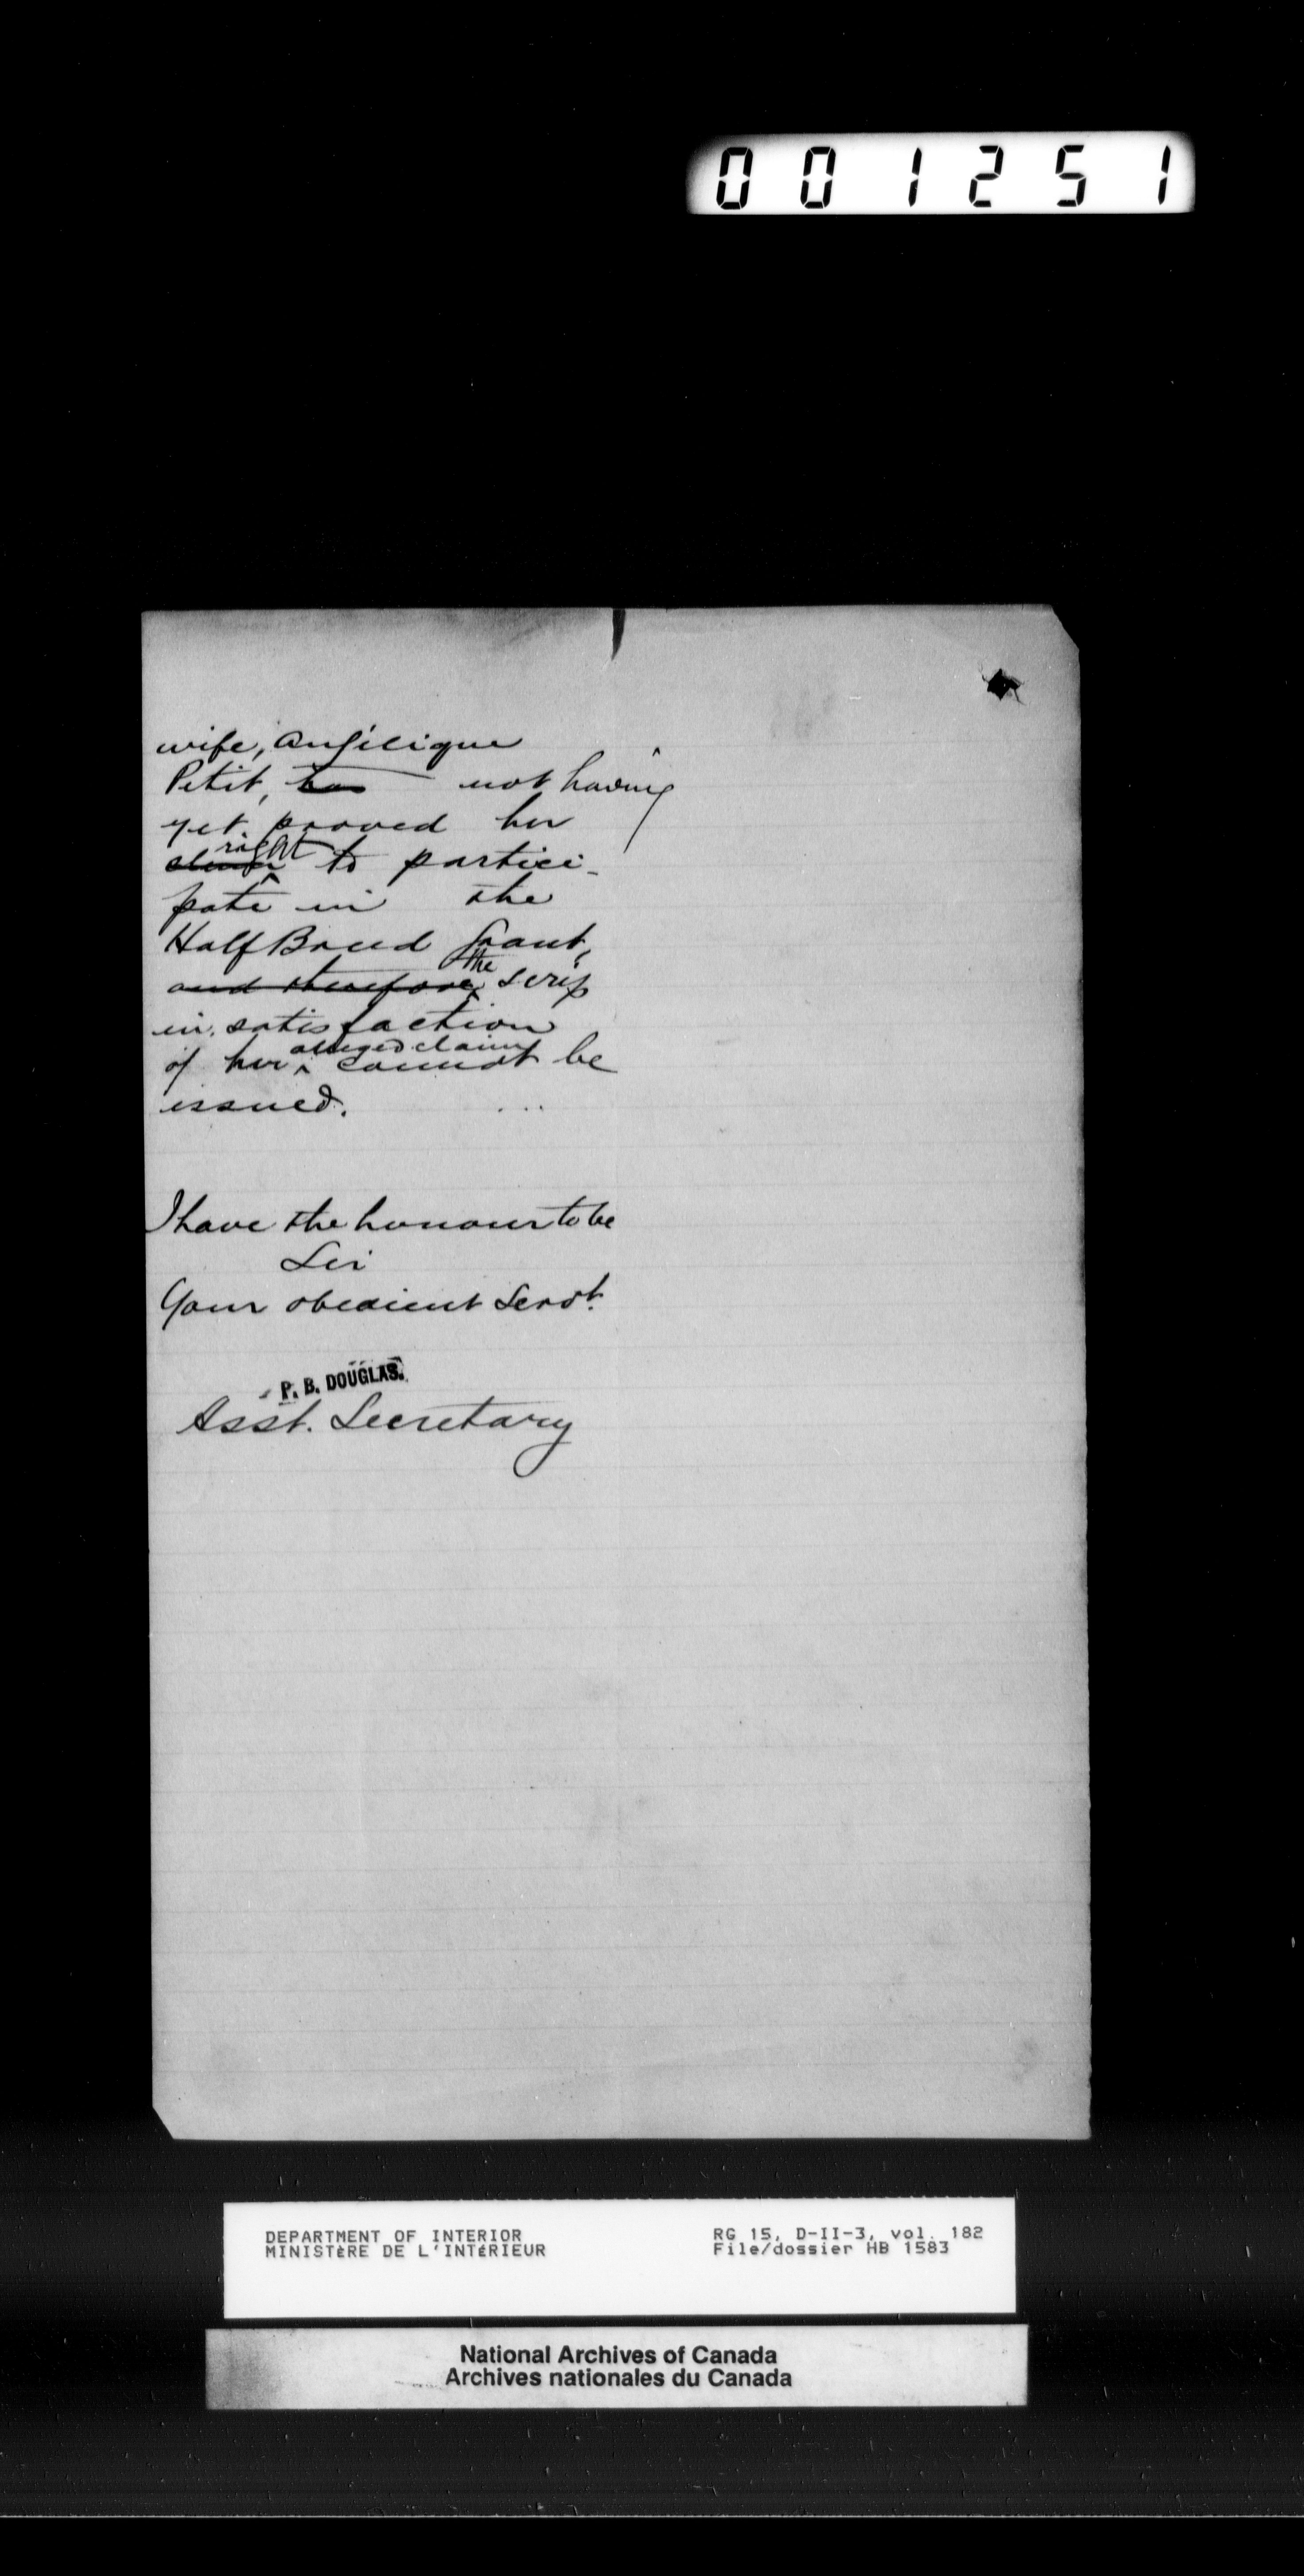 001251
wife, Angélique
Petit, has not having
yet proved her
claim right to partici-
pate in the
Half Breed Grant,
and therefore the scrip
in satisfaction
of her alleged claim cannot be
issued.
I have the honour to be
Sir
Your obedient Servt.
P. B. DOUGLAS.
Asst. Secretary
DEPARTMENT OF INTERIOR RG 15, D-II-3, vol. 182
MINISTÈRE DE L'INTÉRIEUR File/dossier HB 1583
National Archives of Canada
Archives nationales du Canada